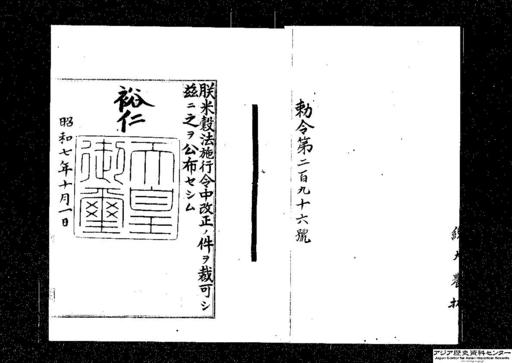 勅令第二百九十六號
朕米穀法施行令中改正ノ件ヲ裁可シ
茲ニ之ヲ公布セシム
裕仁
天皇
御璽
昭和七年十月一日
アジア歴史資料センター
Japan Center for Asian Historical Records